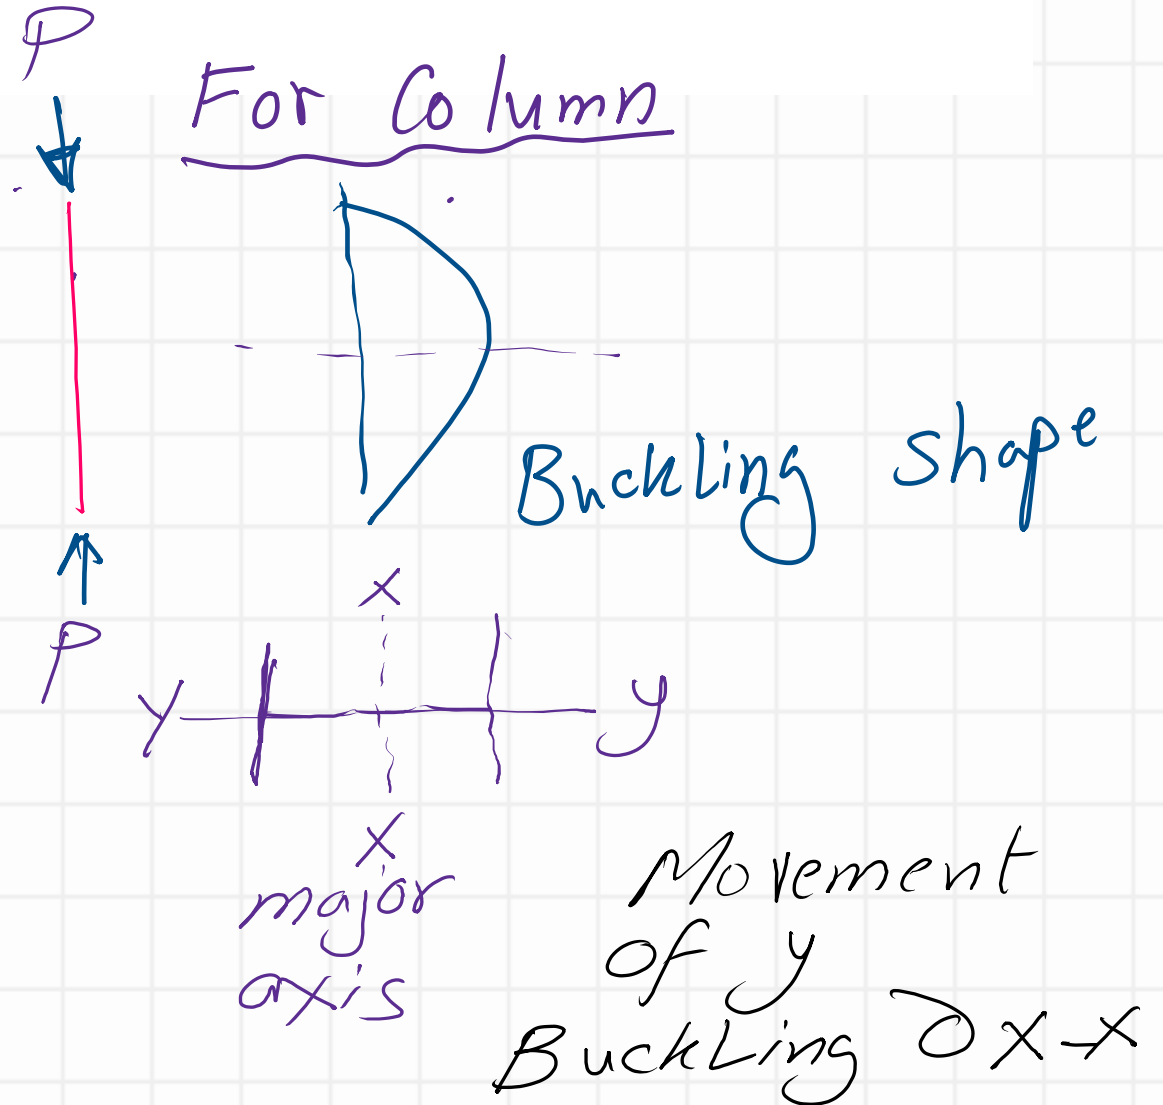 P
For Column
Buckling shape
P
X
Y y
X
major
axis
Movement
of y
Buckling X-X